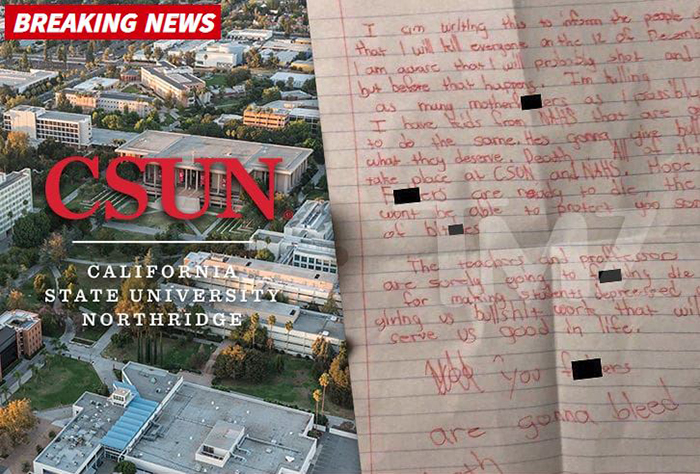 BREAKING NEWS
CSUN
CALIFORNIA
STATE UNIVERSITY
NORTHRIDGE
I am writing this to inform the people
that I will kill everyone on the 12 of
I am aware that I will probably shot and
but before that happens I'm killing
as many mother ers as I possibly
I have kids from NAHS that are
to do the same. Hes gonna give
what they deserve. Death All of
take place at CSUN and NAHS. Hope
F ers are ready to die the
wont be able to protect you
of bit es
The teachers and professor
are surely going to f ing die
for making students depressed
giving us bullshit work that
serve us good in life.
you f ers
are gonna bleed
TMZ